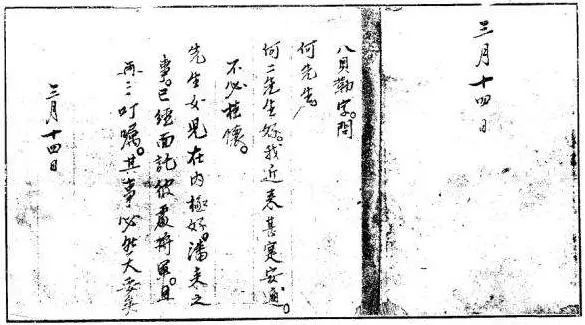 三月十四日
八貝勒字。問
何先生。
何二先生好。我近來甚寔安適。
不必掛懷。
先生女兒在內極好。潘来之
事。已經面託彼處將軍。且
再三叮囑。其事必然大妥矣
三月十四日